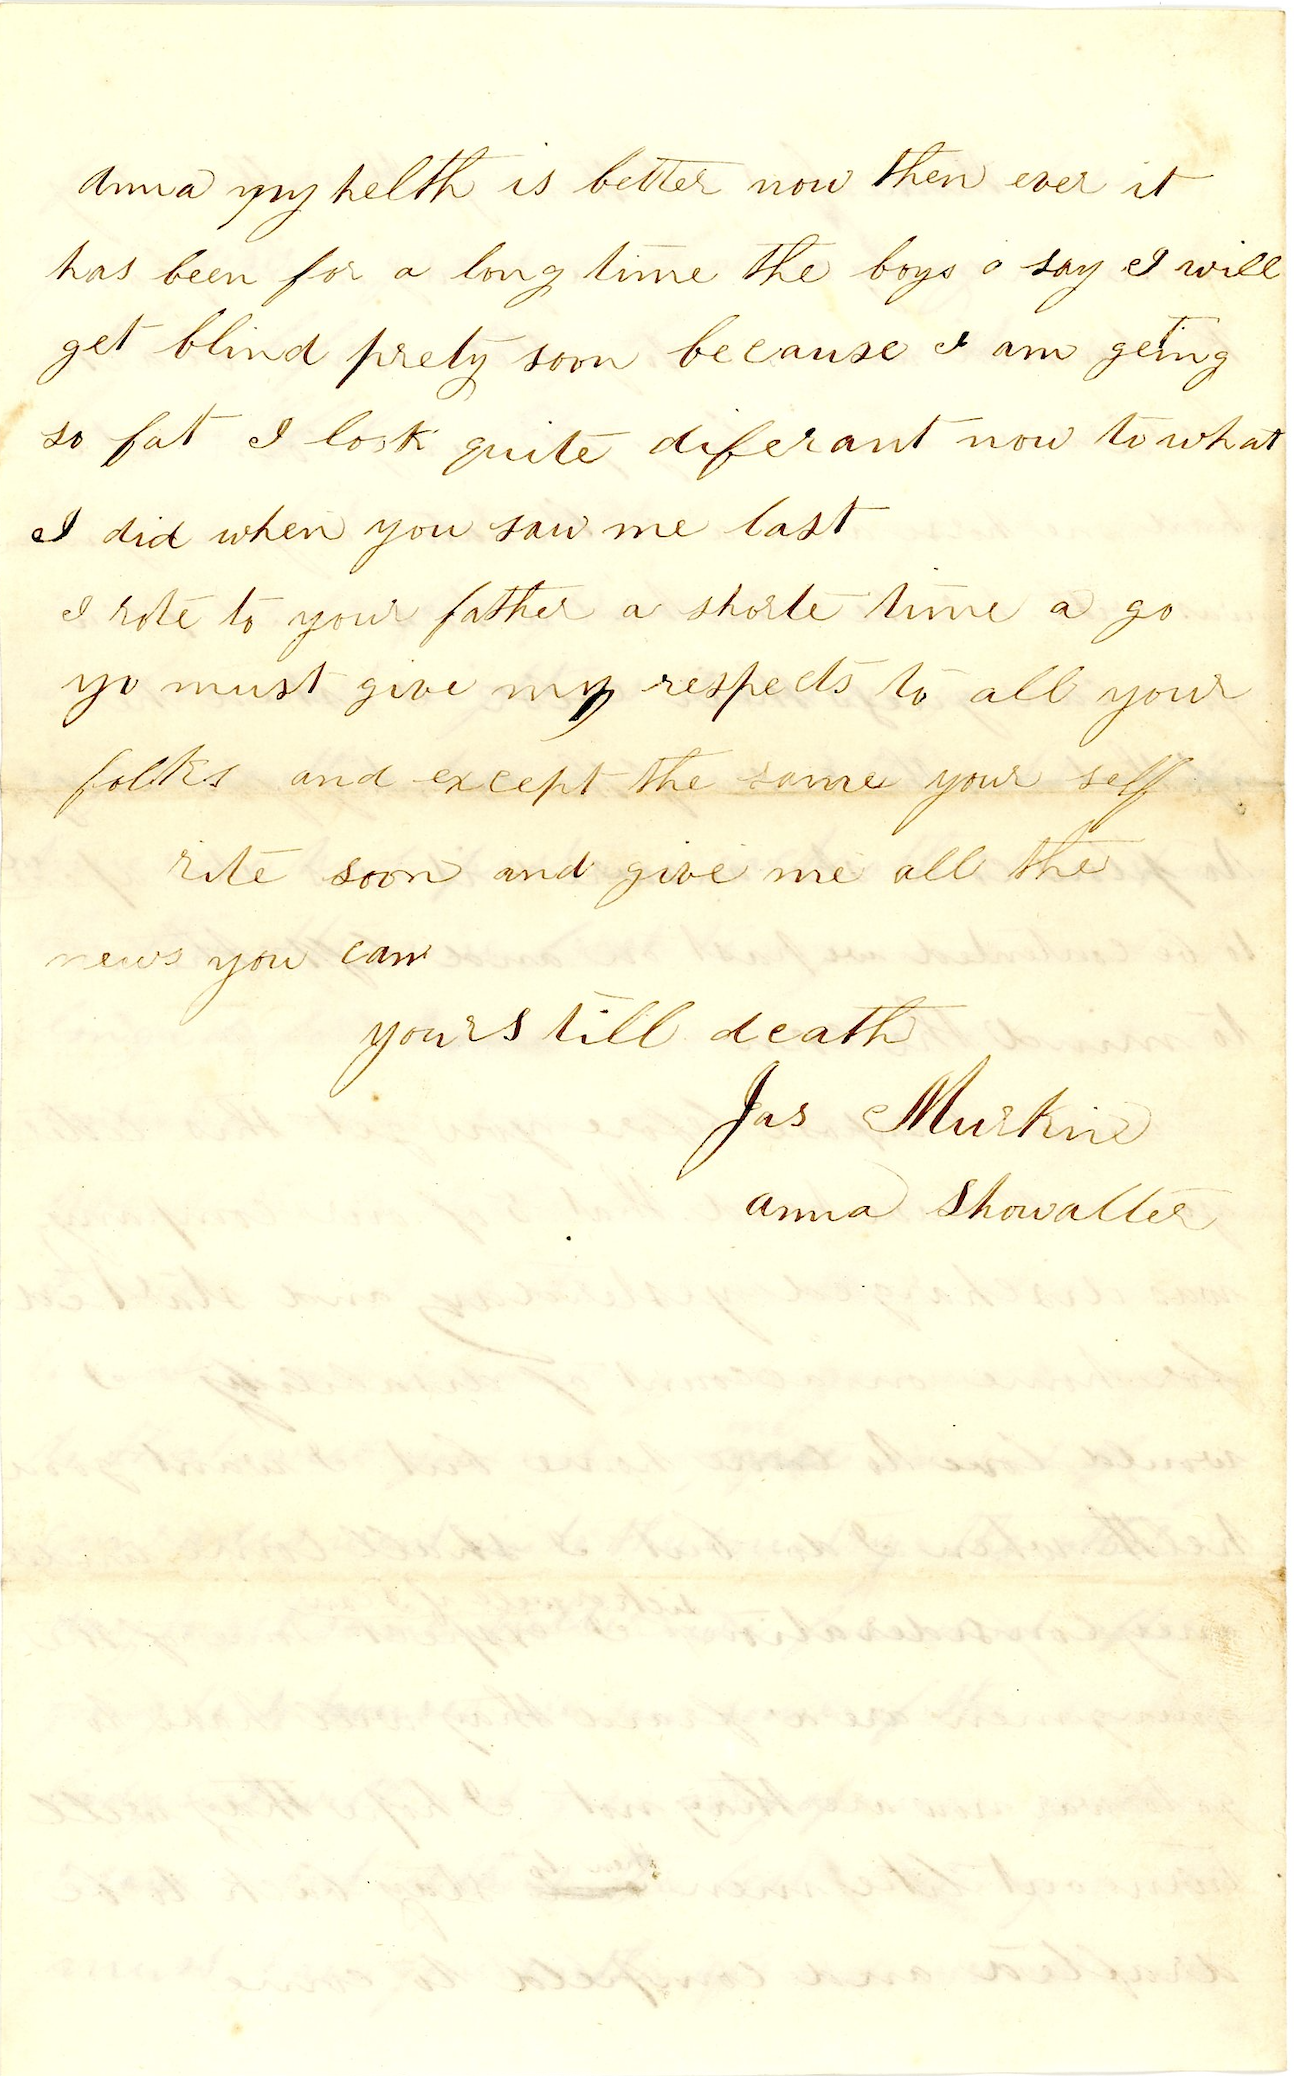 anna my helth is better now then ever it
has been for a long time the boys o say I will
get blind prety soon because I am geting
so fat I look quite diferant now to what
I did when you saw me last
I rote to your father a shorte time a go
yo must give my respects to all your
folks and except the same your self
rite soon and give me all the
news you can
yours till death
Jas Murkin
anna Showalter